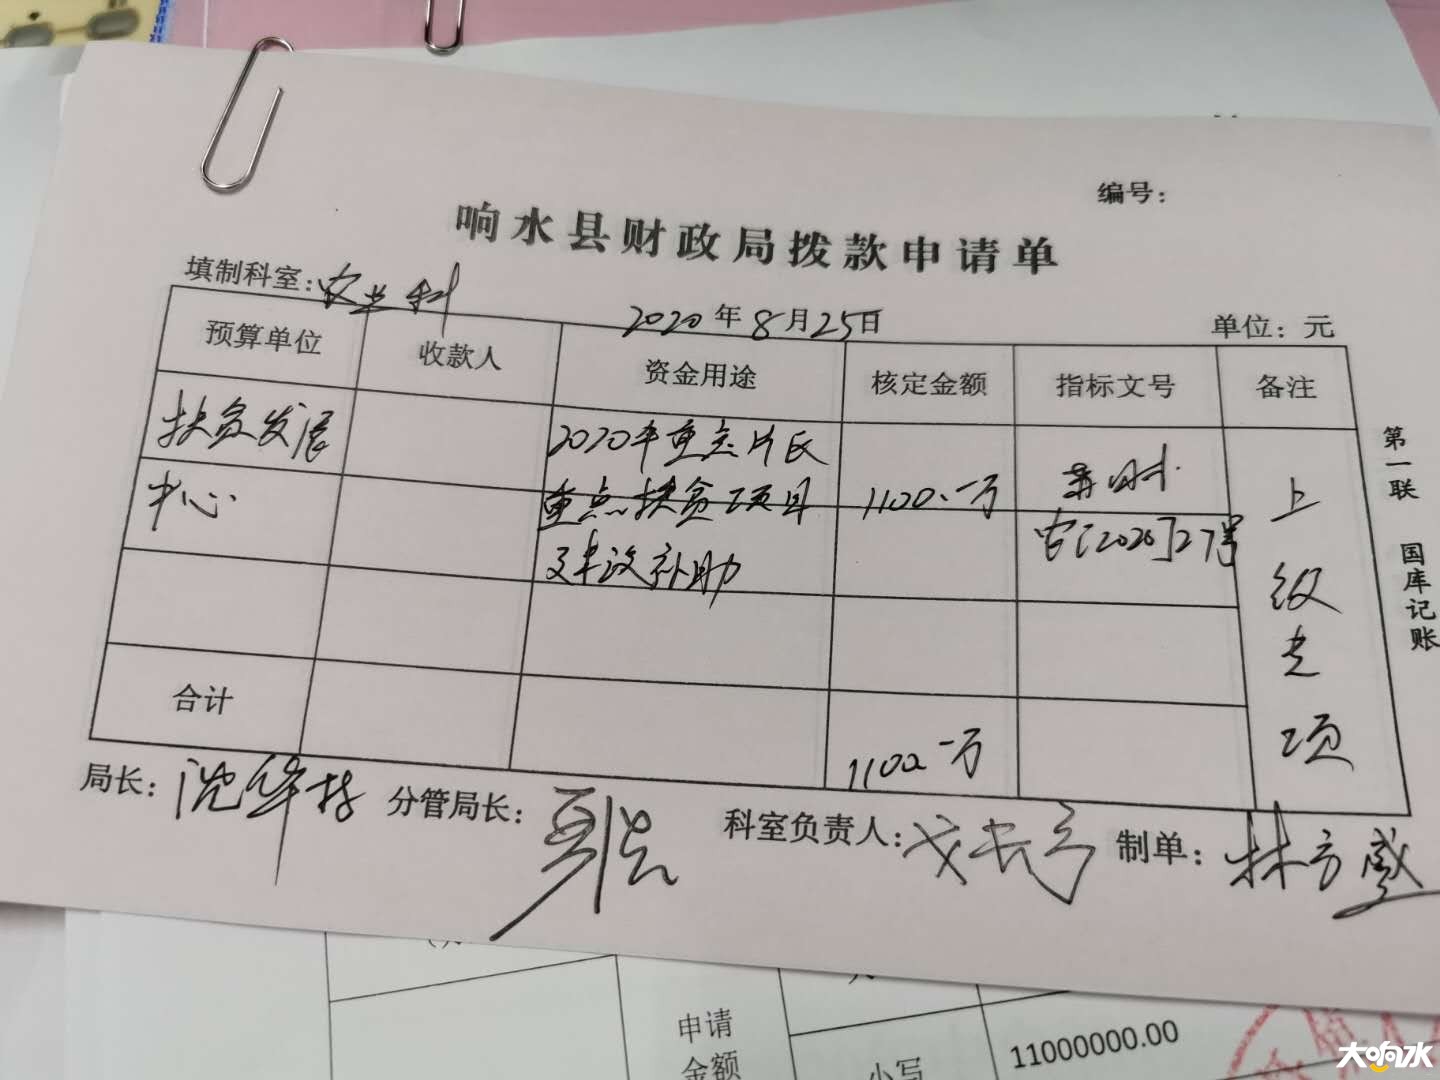 编号：
响水县财政局拨款申请单
填制科室：农业科
2020年8月25日
单位：元
预算单位 收款人 资金用途 核定金额 指标文号 备注
扶贫发展
中心
2020年重点片区
重点扶贫项目
财政补助
1100.一万
苏财
农[2020]27号
上级专项
合计
1100一万
局长：沈华
分管局长：
科室负责人：
制单：林方盛
第一联 国库记账
申请
金额
小写
11000000.00
大响水